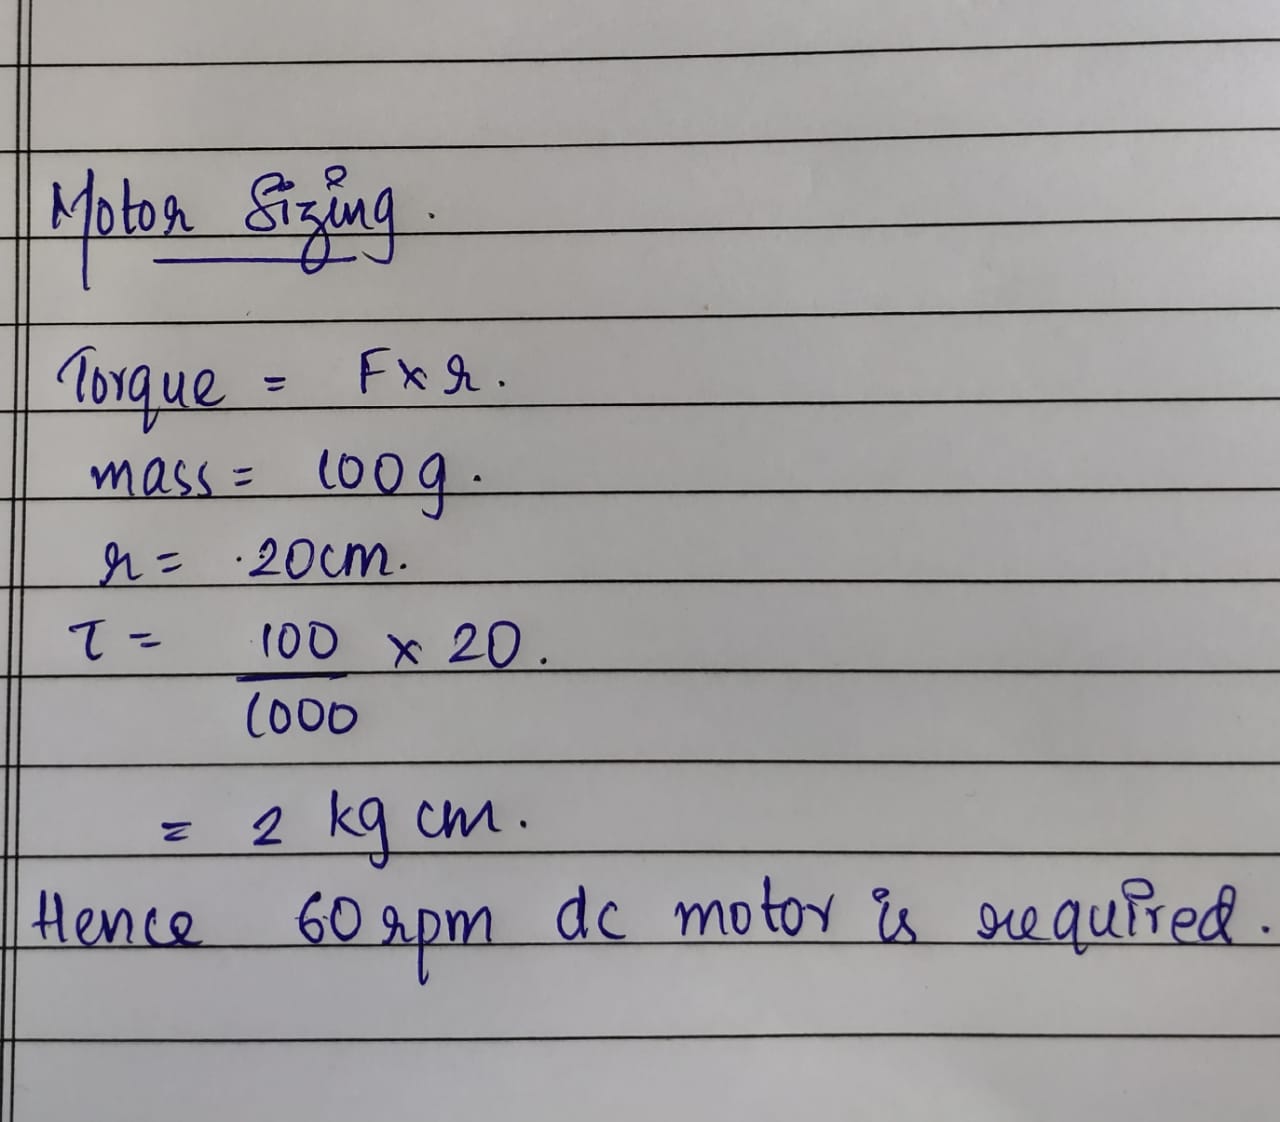 Motor Sizing.
Torque = F x r.
mass = 100g.
r = 20cm.
τ = 100 x 20.
1000
= 2 kg cm.
Hence 60 rpm dc motor is required.